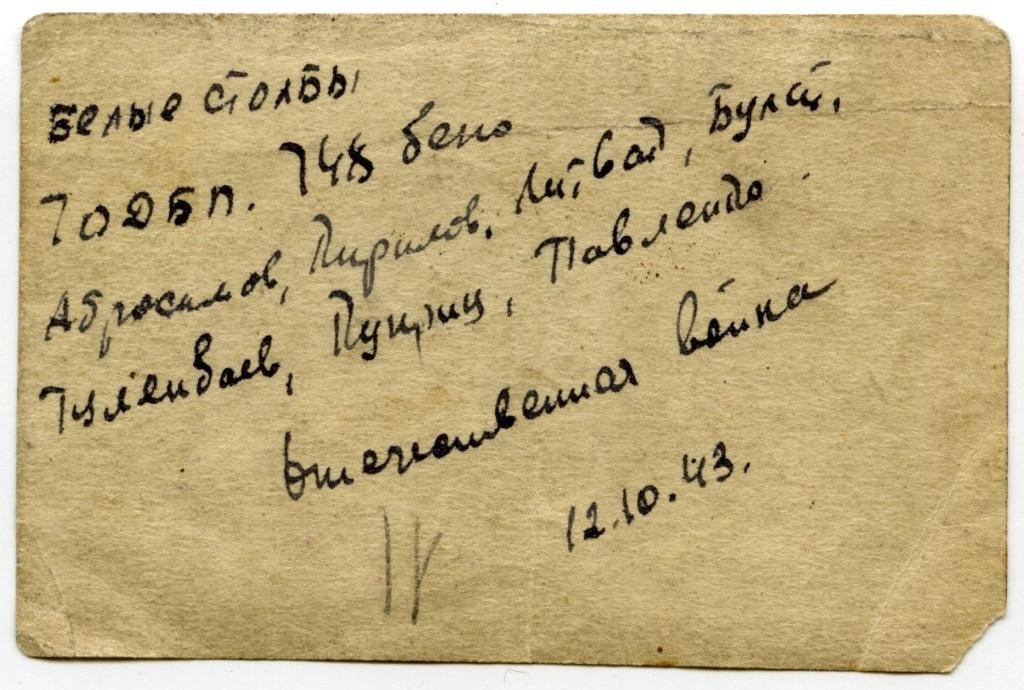 Белые столбы
7ОДБП. 748 бено
Абросимов, Пирилов, Литвад, Булат,
Туленбаев, Пункриц, Павленко.
Отечественная война
12.10.43.